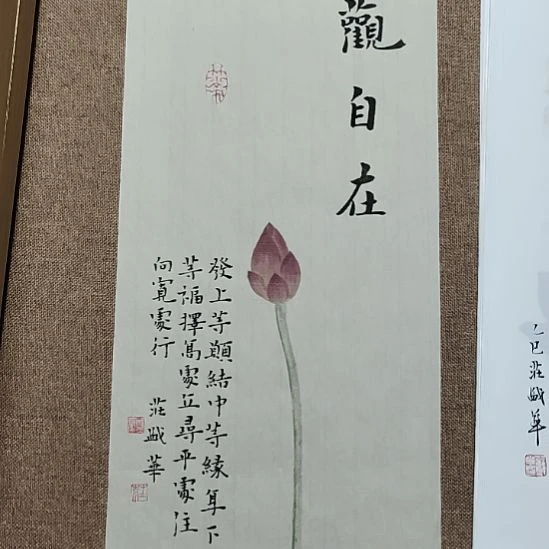 觀自在
發上等願結中等緣享下
等福擇高處立尋平處住
向寬處行
莊
華
乙巳莊
華